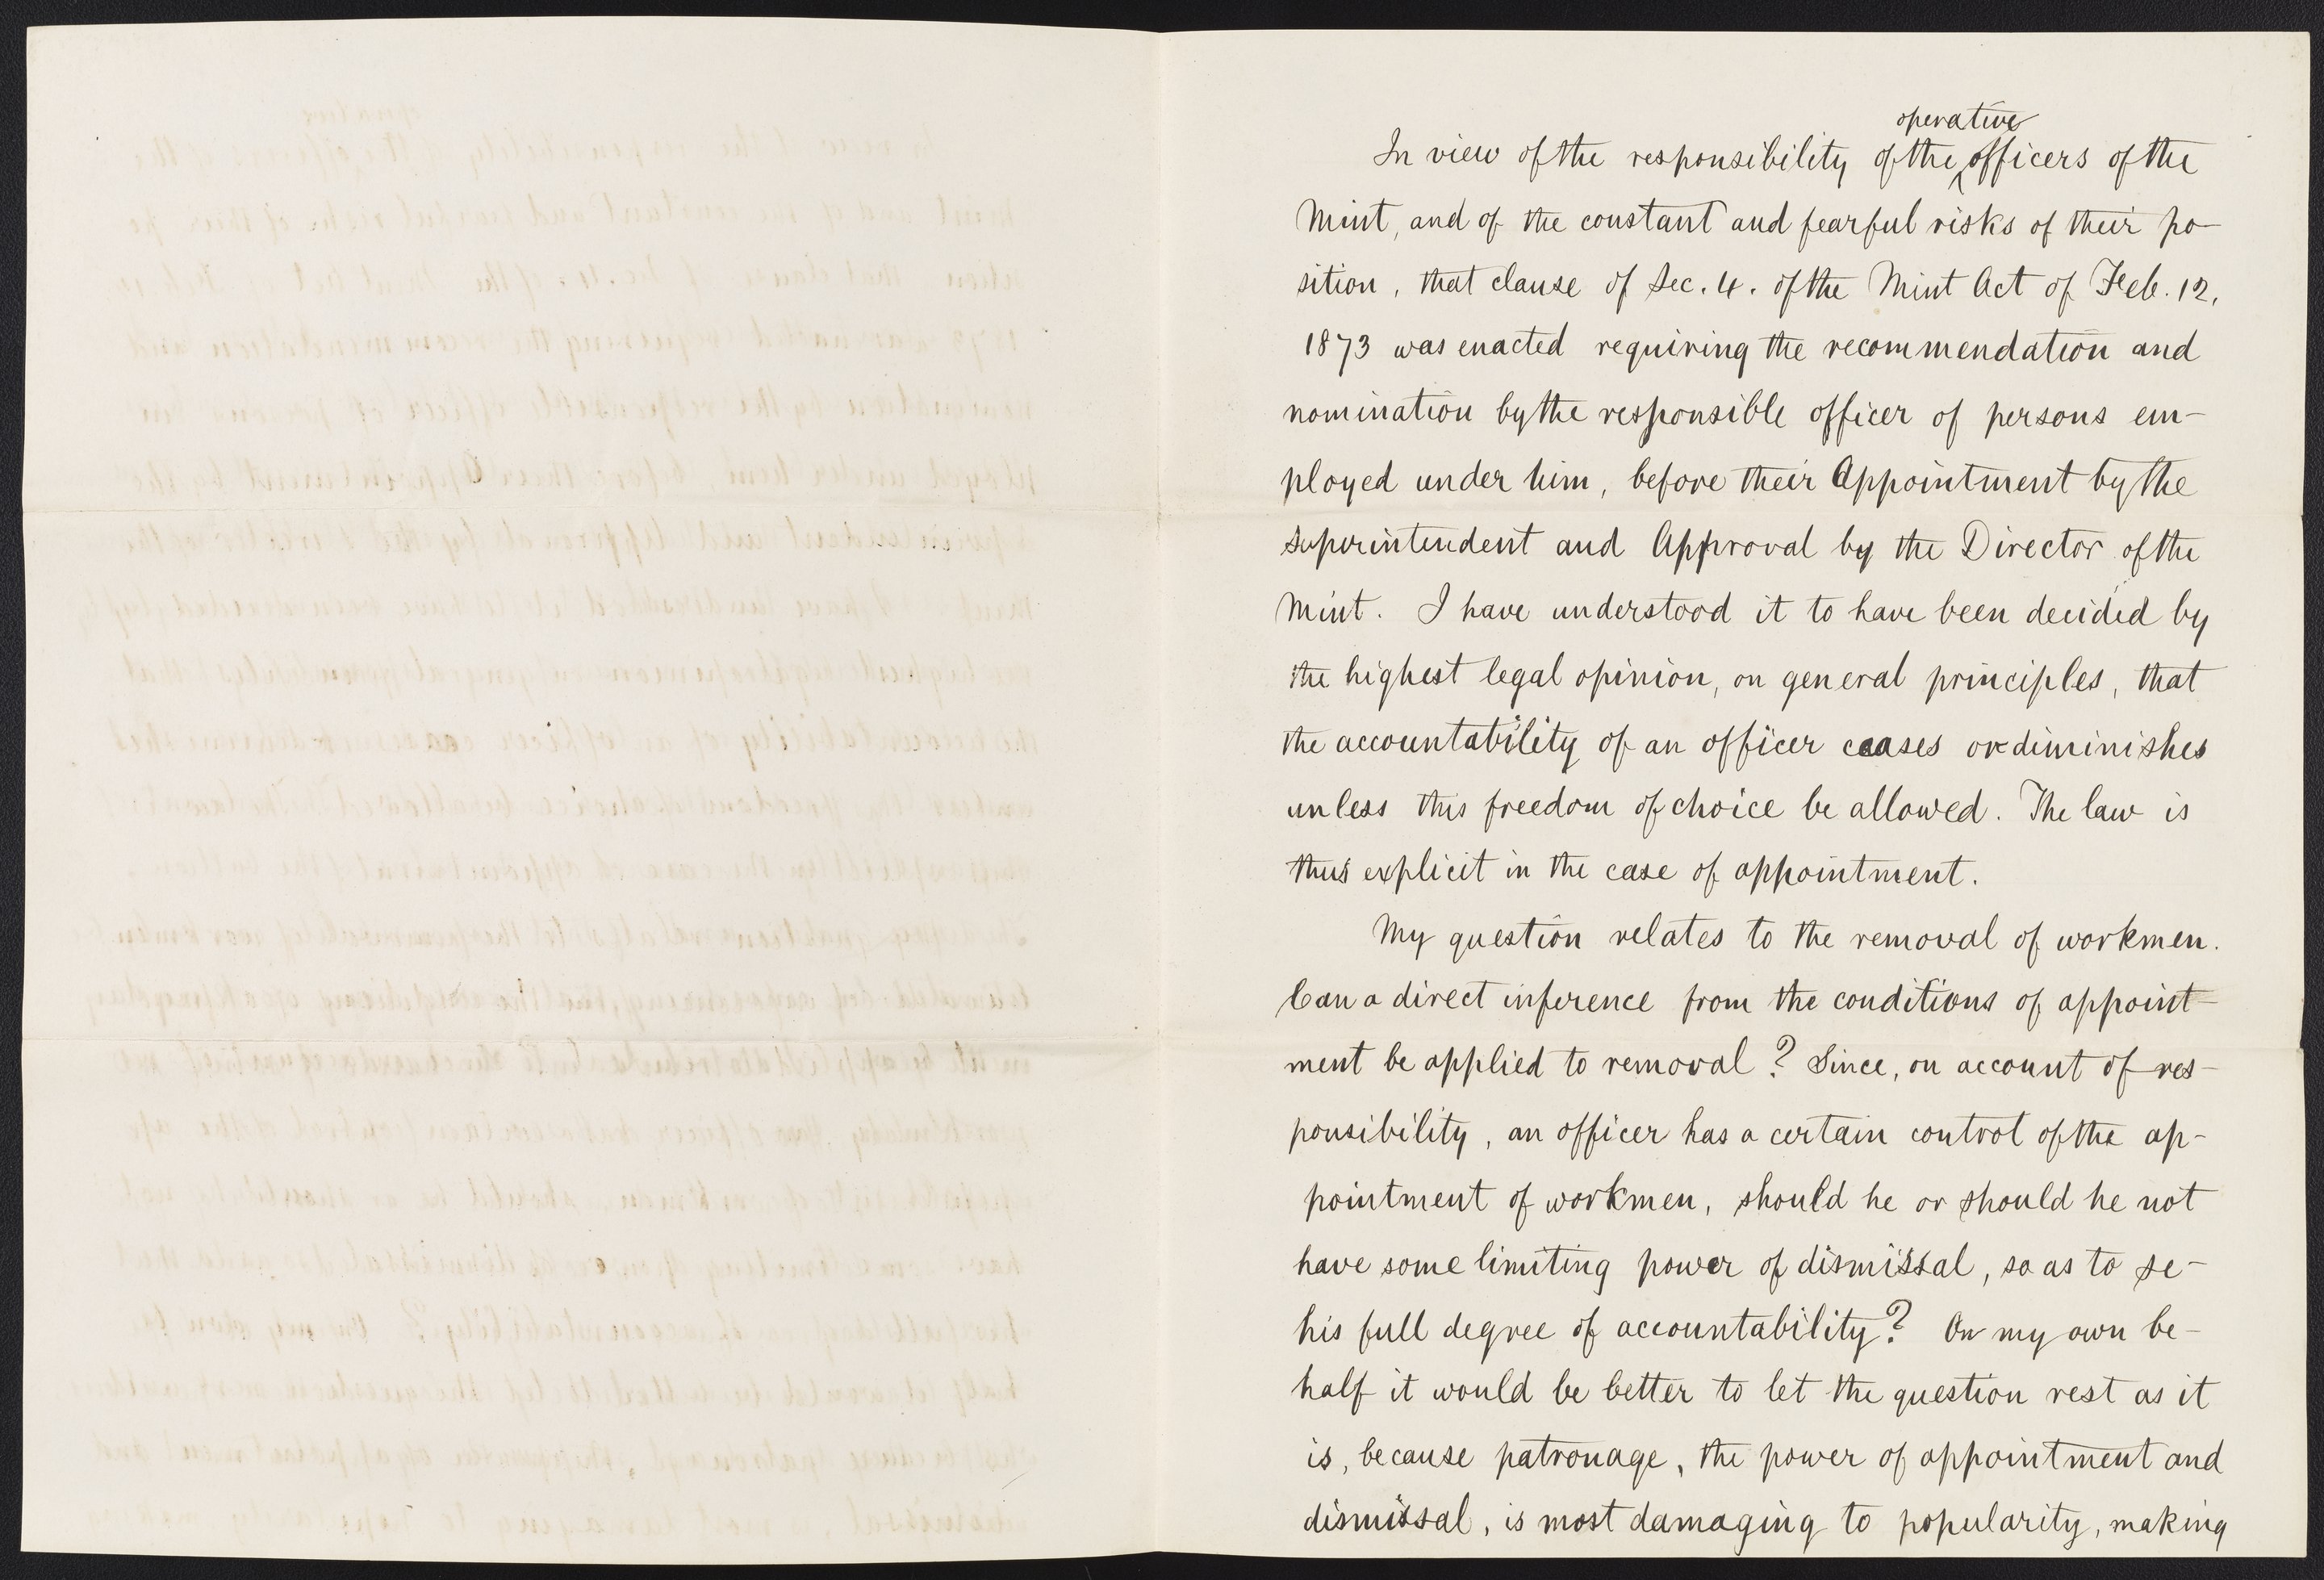 In view of the responsibility of the operative officers of the
Mint, and of the constant and fearful risks of their po-
sition, that clause of Sec. 4. of the Mint Act of Feb. 12,
1873 was enacted requiring the recommendation and
nomination by the responsible officer of persons em-
ployed under him, before their Appointment by the
Superintendent and Approval by the Director of the
Mint. I have understood it to have been decided by
the highest legal opinion, on general principles, that
the accountability of an officer ceases or diminishes
unless this freedom of choice be allowed. The law is
thus explicit in the case of appointment.
My question relates to the removal of workmen.
Can a direct inference from the conditions of appoint-
ment be applied to removal? Since, on account of res-
ponsibility, an officer has a certain control of the ap-
pointment of workmen, should he or should he not
have some limiting power of dismissal, so as to se-
his full degree of accountability? On my own be-
half it would be better to let the question rest as it
is, because patronage, the power of appointment and
dismissal, is most damaging to popularity, making